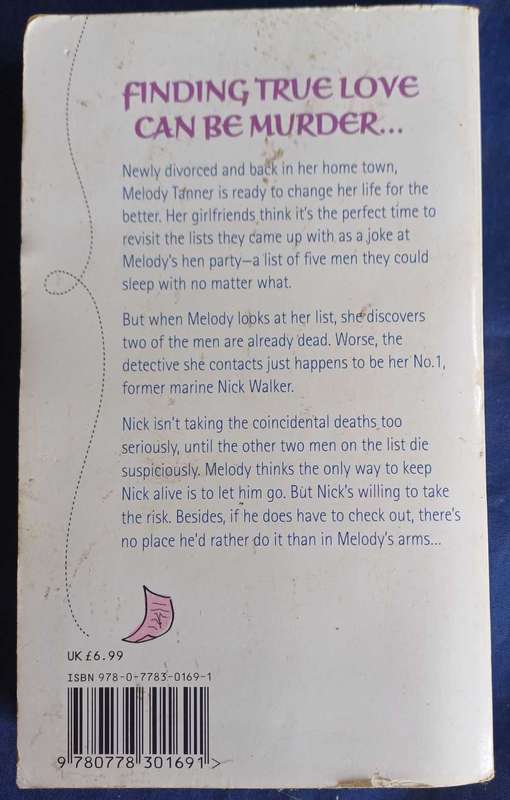 FINDING TRUE LOVE
CAN BE MURDER...
Newly divorced and back in her home town,
Melody Tanner is ready to change her life for the
better. Her girlfriends think it's the perfect time to
revisit the lists they came up with as a joke at
Melody's hen party—a list of five men they could
sleep with no matter what.
But when Melody looks at her list, she discovers
two of the men are already dead. Worse, the
detective she contacts just happens to be her No.1,
former marine Nick Walker.
Nick isn't taking the coincidental deaths too
seriously, until the other two men on the list die
suspiciously. Melody thinks the only way to keep
Nick alive is to let him go. But Nick's willing to take
the risk. Besides, if he does have to check out, there's
no place he'd rather do it than in Melody's arms...
UK £6.99
ISBN 978-0-7783-0169-1
9 780778 301691 >